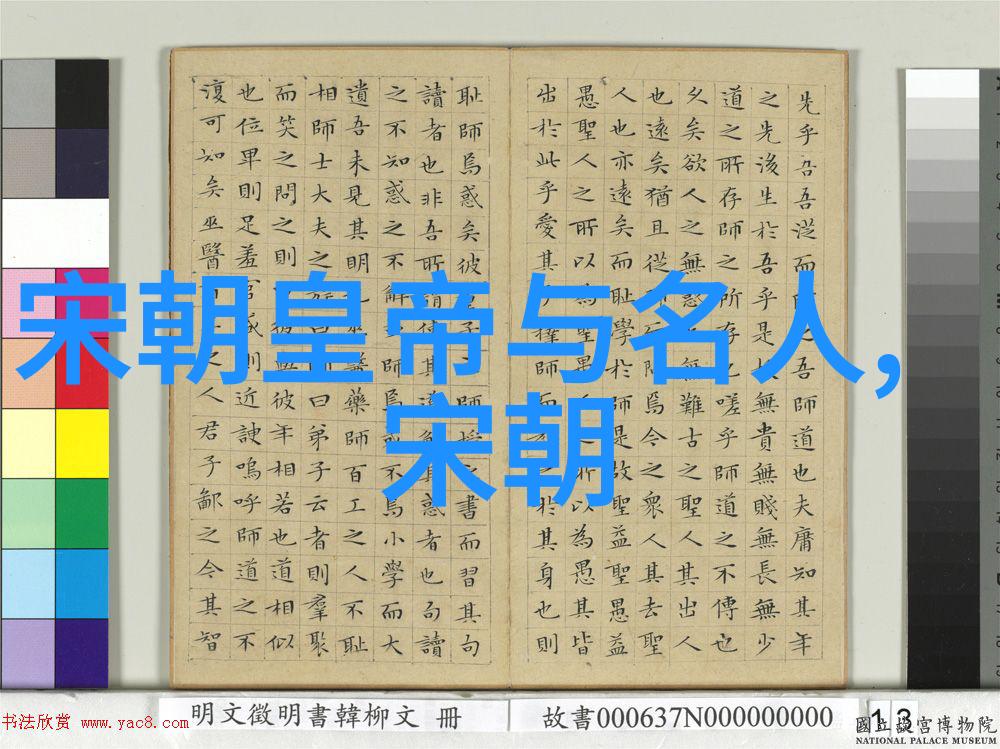 宋朝皇帝与名人,
宋朝
先乎吾吾從而師之吾師道也夫庸知其年
之先後生於吾乎是故無貴無賤無長無少
道之所存師之所存也嗟乎師道之不傳也
久矣欲人之無惑無難古之聖人其出人
也遠矣猶且從師而問焉今之衆人其去聖
人也亦遠矣而恥學於師是故聖益聖愚益
愚聖人之所以為聖愚人之所以為愚其皆
出於此乎愛其子擇師而之於其身也則
恥師焉惑矣彼童子之師授之書而習其句
讀者也非吾所謂傳其道解其惑者也句讀
之不知惑之不解或師焉或不焉小學而大
遺吾未見其明也巫醫藥師百工之人不恥
相師士大夫之族曰師曰弟子云者則羣聚
而笑之問之則曰彼與彼年相若也道相似
也位卑則足羞官盛則近諛嗚呼師道之不
復可知矣巫醫百工之人君子鄙之今其智
明文徵明書韓柳文 冊
故書000637N000000000
13
书法欣赏 www.yac8.com
國立故宮博物院
NATIONAL PALACE MUSEUM